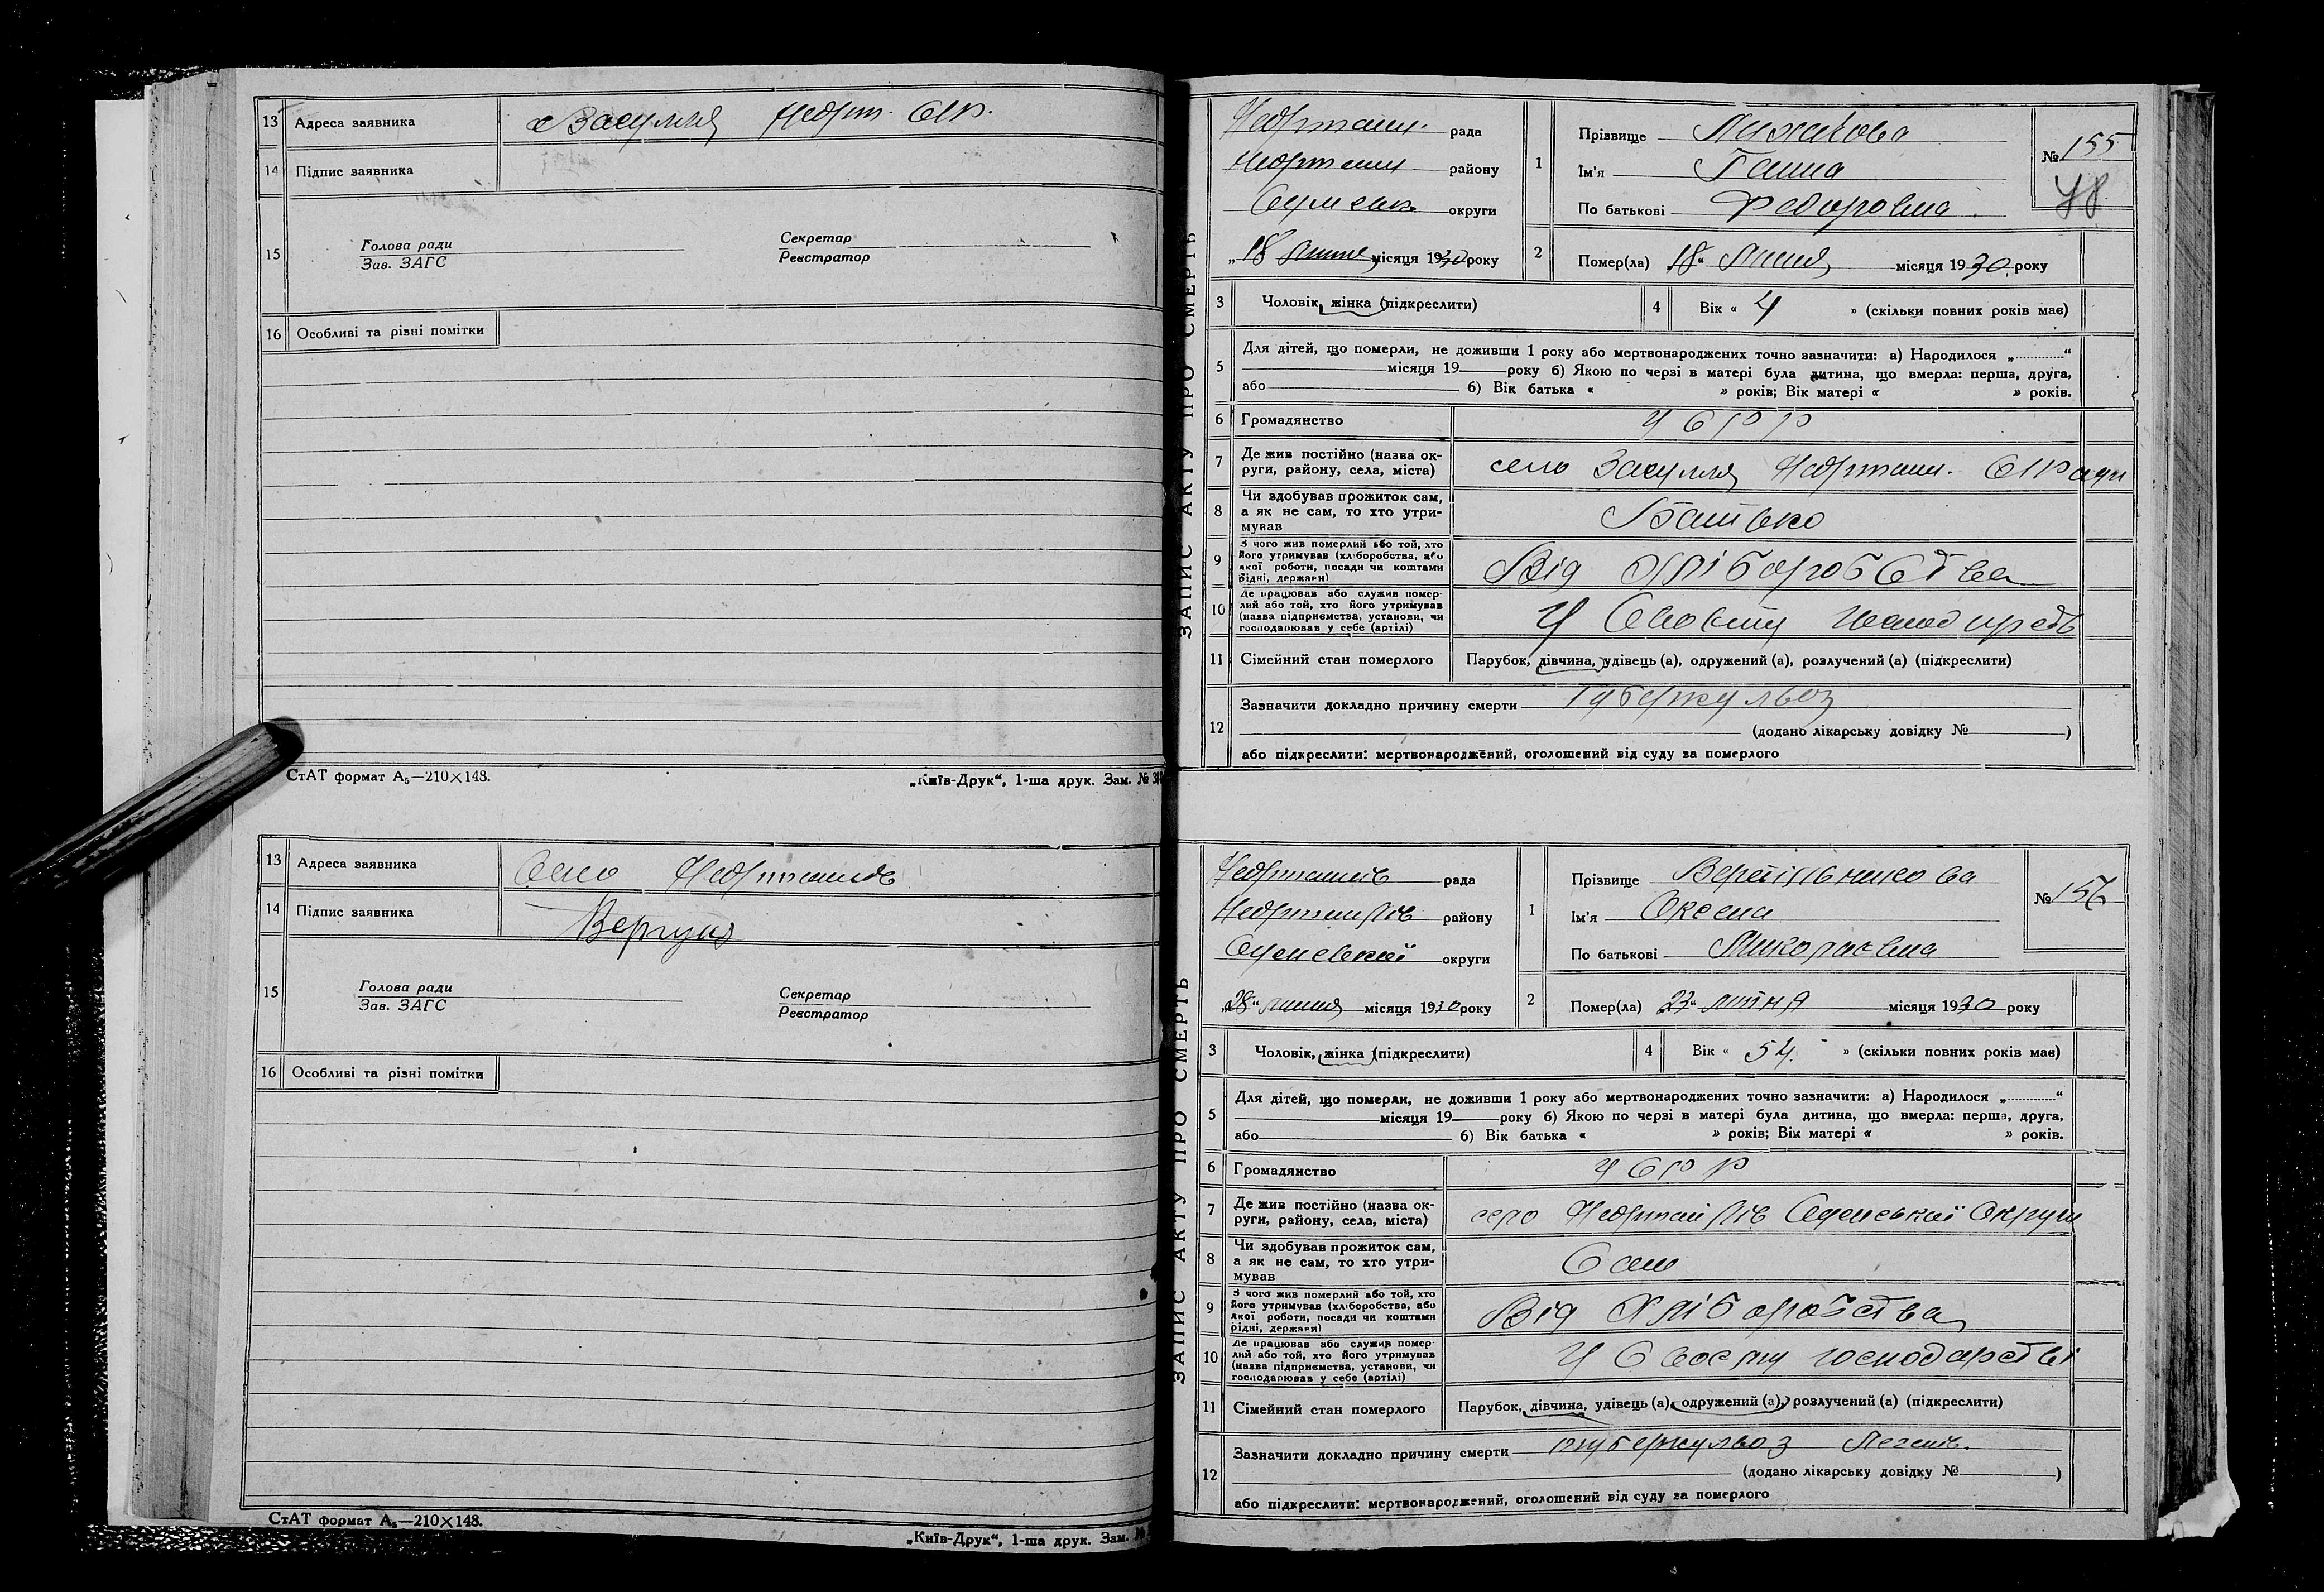 13 Адреса заявника Засулля Недриг. С/Р.
14 Підпис заявника
15 Голова ради
Зав. ЗАГС
Секретар
Реєстратор
16 Особливі та різні помітки
СтАТ формат А₅—210×148. „Київ-Друк“, 1-ша друк. Зам. №
13 Адреса заявника Село
14 Підпис заявника Вергун
15 Голова ради
Зав. ЗАГС
Секретар
Реєстратор
16 Особливі та різні помітки
СтАТ формат А₅—210×148.
„Київ-Друк“, 1-ша друк. Зам. №
ЗАПИС АКТУ ПРО СМЕРТЬ
рада
району
округи
„18 липня місяця 1930 року
1 Прізвище
Ім'я Ганна
По батькові Федоровна
№ 155
78
2 Помер(ла) 18“ липня місяця 1930 року
3 Чоловік, жінка (підкреслити) 4 Вік « 4 » (скільки повних років має)
5 Для дітей, що померли, не доживши 1 року або мертвонароджених точно зазначити: а) Народилося „ “
місяця 19 року б) Якою по черзі в матері була дитина, що вмерла: перша, друга,
або б) Вік батька « » років; Вік матері « » років.
6 Громадянство УСРР
7 Де жив постійно (назва ок-
руги, району, села, міста) село Засулля
8 Чи здобував прожиток сам,
а як не сам, то хто утри-
мував Батько
9 З чого жив померлий або той, хто
його утримував (хліборобства, або
якої роботи, посади чи коштами
рідні, держави) Від хліборобства
10 Де працював або служив помер-
лий або той, хто його утримував
(назва підприємства, установи, чи
господарював у себе (артілі) У
11 Сімейний стан померлого Парубок, дівчина, удівець (а), одружений (а), розлучений (а) (підкреслити)
12 Зазначити докладно причину смерти Туберкульоз
(додано лікарську довідку № )
або підкреслити: мертвонароджений, оголошений від суду за померлого
ЗАПИС АКТУ ПРО СМЕРТЬ
рада
району
Сумської округи
„28“ липня місяця 1930 року
1 Прізвище
Ім'я Оксана
По батькові Миколаєвна
№ 156
2 Помер(ла) 27“ липня місяця 1930 року
3 Чоловік, жінка (підкреслити) 4 Вік « 54. » (скільки повних років має)
5 Для дітей, що померли, не доживши 1 року або мертвонароджених точно зазначити: а) Народилося „ “
місяця 19 року б) Якою по черзі в матері була дитина, що вмерла: перша, друга,
або б) Вік батька « » років; Вік матері « » років.
6 Громадянство УСРР
7 Де жив постійно (назва ок-
руги, району, села, міста) село Недригайлів Сумської Округи
8 Чи здобував прожиток сам,
а як не сам, то хто утри-
мував Сам
9 З чого жив померлий або той, хто
його утримував (хліборобства, або
якої роботи, посади чи коштами
рідні, держави) Від Хліборобства
10 Де працював або служив помер-
лий або той, хто його утримував
(назва підприємства, установи, чи
господарював у себе (артілі) У Своєму господарстві
11 Сімейний стан померлого Парубок, дівчина, удівець (а), одружений (а), розлучений (а) (підкреслити)
12 Зазначити докладно причину смерти туберкульоз Легень.
(додано лікарську довідку № )
або підкреслити: мертвонароджений, оголошений від суду за померлого